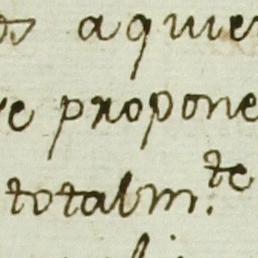 aquie
e propone
totalm.te